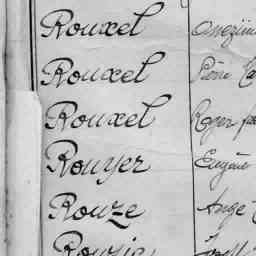 Rouxel Onézim
Rouxel Pierre
Rouxel Roger
Rouyer Eugène
Rouze Ange